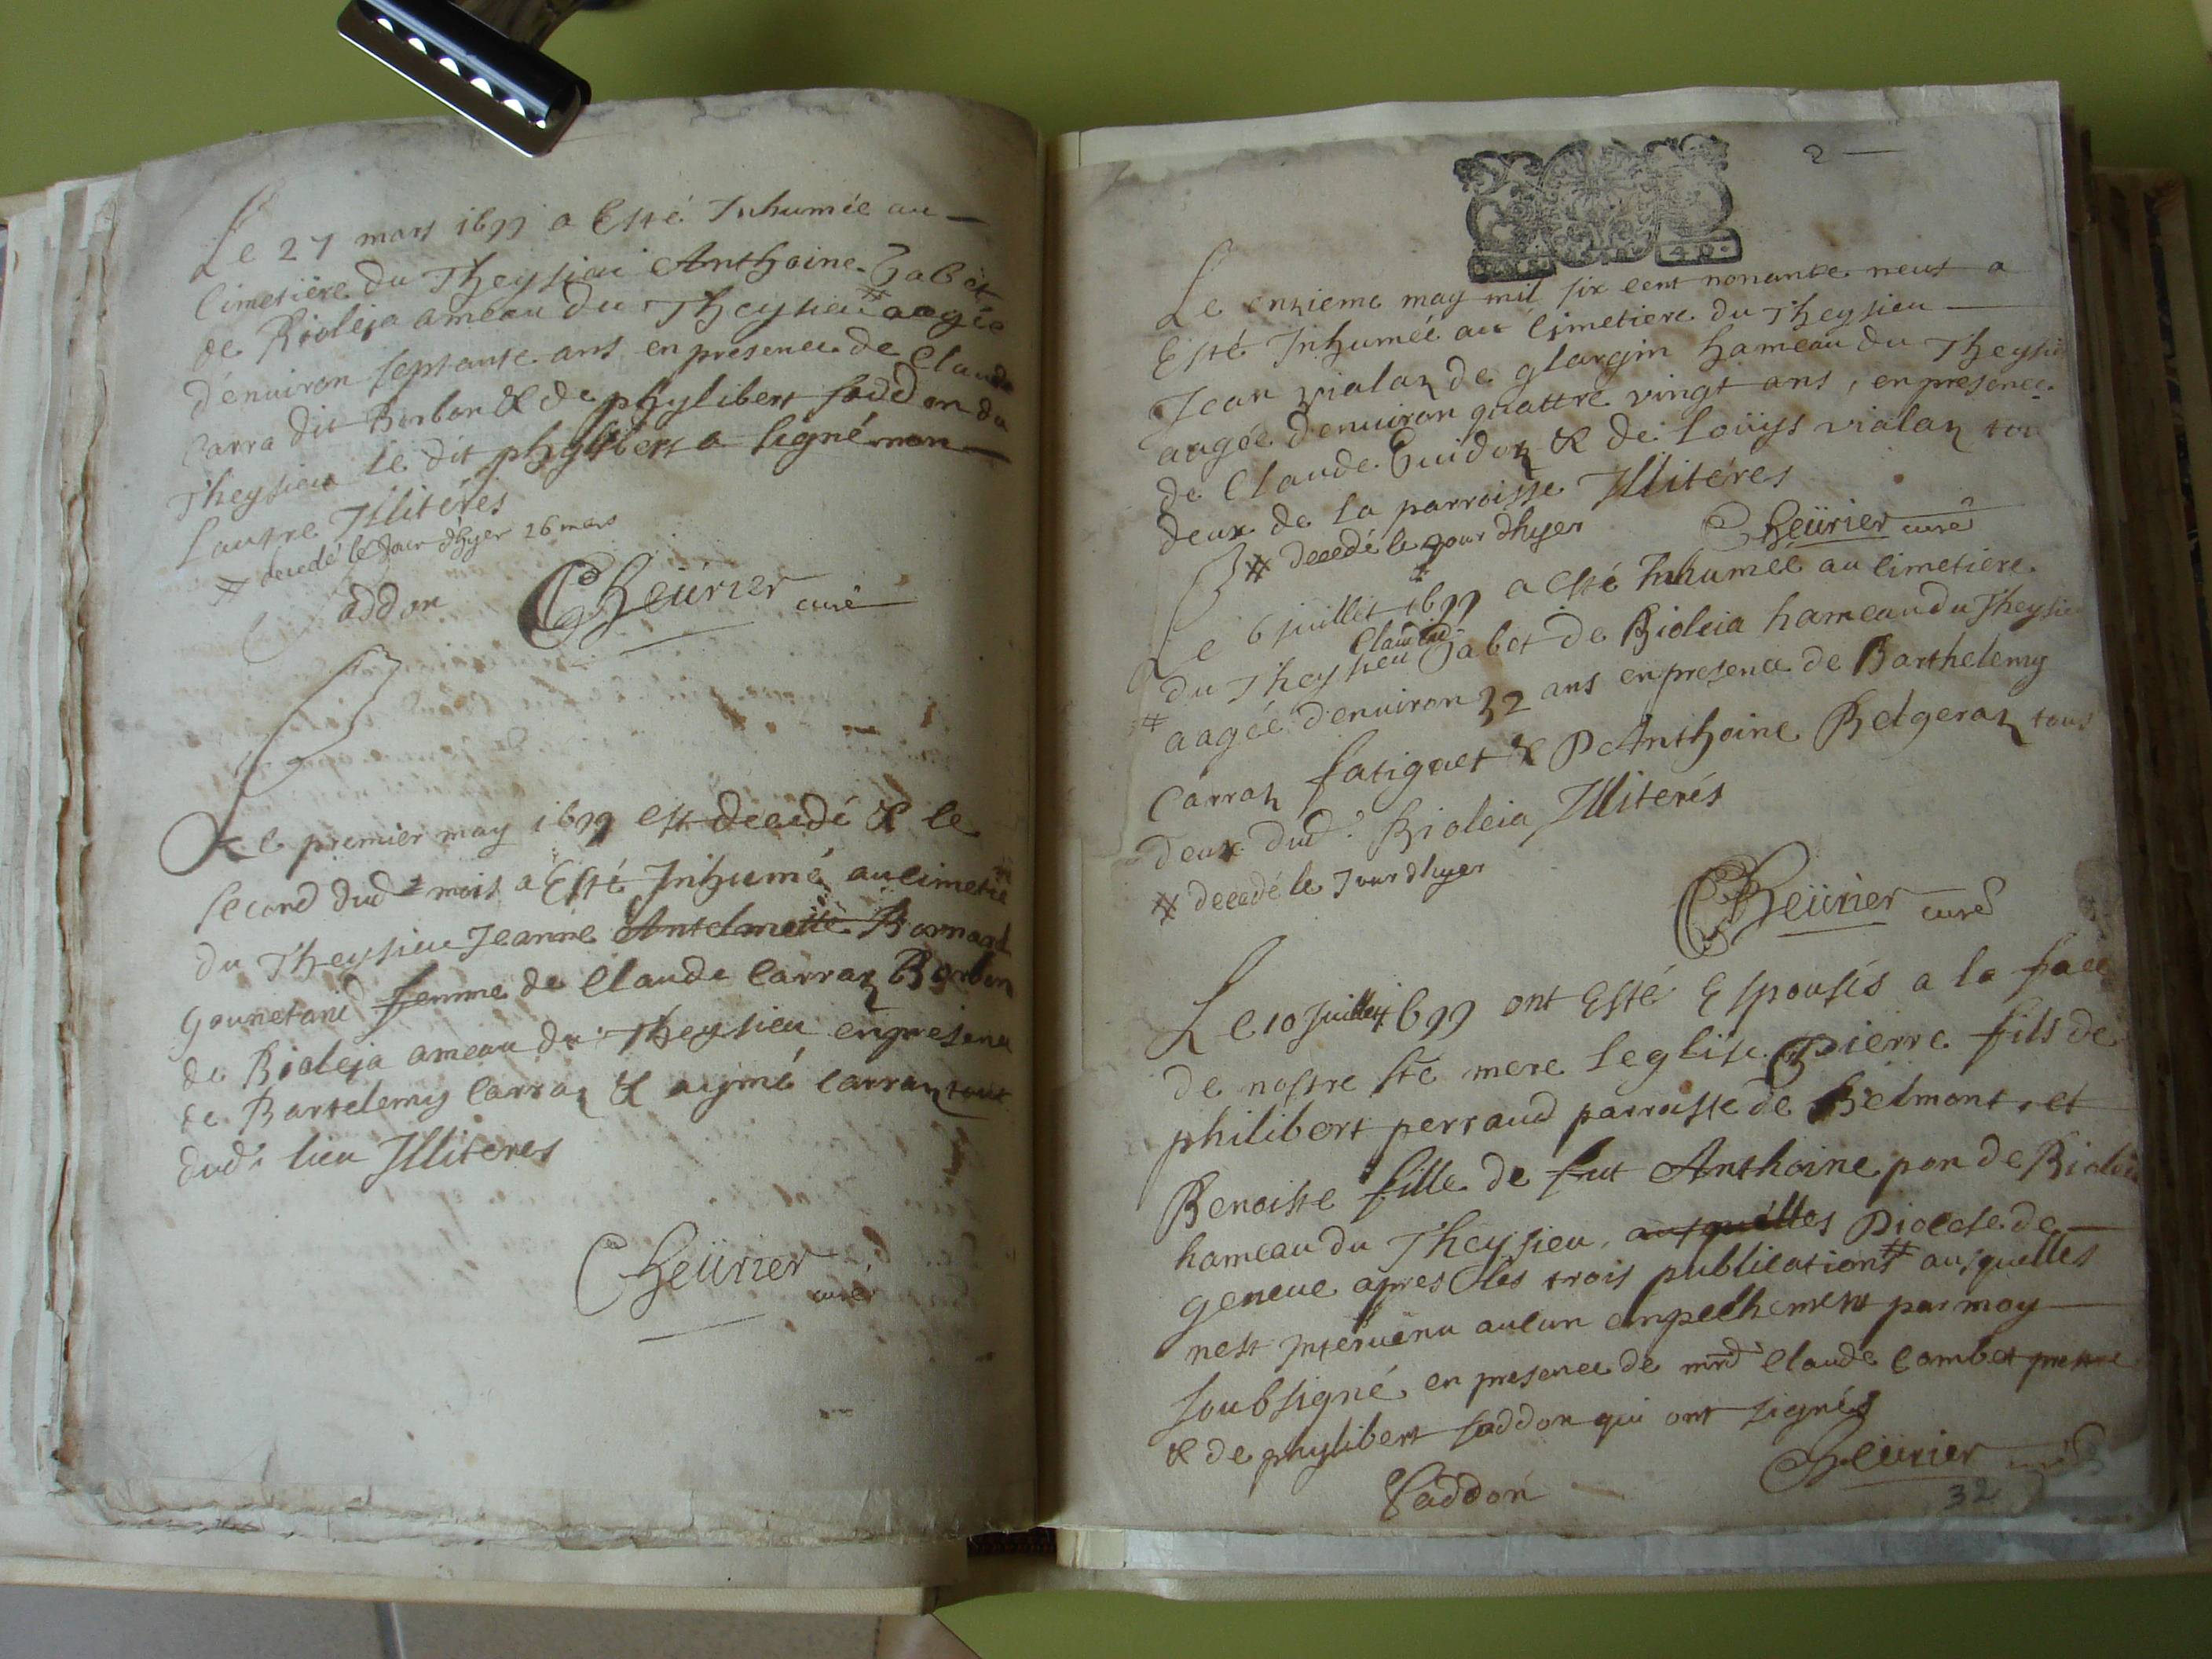 Le 27 mars 1699 a Esté Inhumée au
Cimetière du Theysieu Anthoine Gabet
de Rioleja ameau du Theysieu # aagée
d'enuiron septante ans en presence de Claude
Carra dit Borbon & de phylibert faddon du
Theysieu le dit phylibert a signé non
lautre Illitéres
# decedé le Jour d'hyer 26 mars
faddon Cheürier curé
Le premier may 1699 est decedé & le
second dud.t mois a Esté Inhumé au cimetie
du Theysieu Jeanne Antelmette Bornard
femme de Claude Carraz Borbon
de Rioleja ameau du Theysieu en presence
de Bartelemy Carraz & aymé Carraz tous
dud.t lieu Illiteres
Cheürier
curé
2
40
Le onzieme may mil six cent nonante neuf a
Esté Inhumée au Cimetiere du Theysieu
Jean vialaz de glargin hameau du Theysieu
aagée d'enuiron quattre vingt ans, en presence
de Claude Guidoz & de Loüys vialaz tou
deux de la parroisse Illiteres
# decedé le jour dhyer Cheürier curé
Le 6 juillet 1699 a esté Inhumée au cimetiere
Claudin
du Theysieu Gabet de Rioleia hameau du Theysieu
# aagée d'enuiron 32 ans en presence de Barthelemy
Carraz fatiguet & D'Anthoine Belgeraz tous
deux dud.t Rioleia Illiterés
# decedé le Jour dhyer
Cheürier curé
Le 10 Juillet 1699 ont Esté Espousés a la face
de nostre ste mere leglise Pierre fils de
philibert perraud parroisse de Belmont, et
Benoiste fille de fut Anthoine pon de Rioleia
hameau du Theysieu, ausquelles Diocese de
geneue apres les trois publications # ausquelles
nest Interuenu aucun empechement par moy
soubsigné en presence de mrd Claude Combet prestre
& de phylibert faddon qui ont signés
Faddon Cheürier curé
32